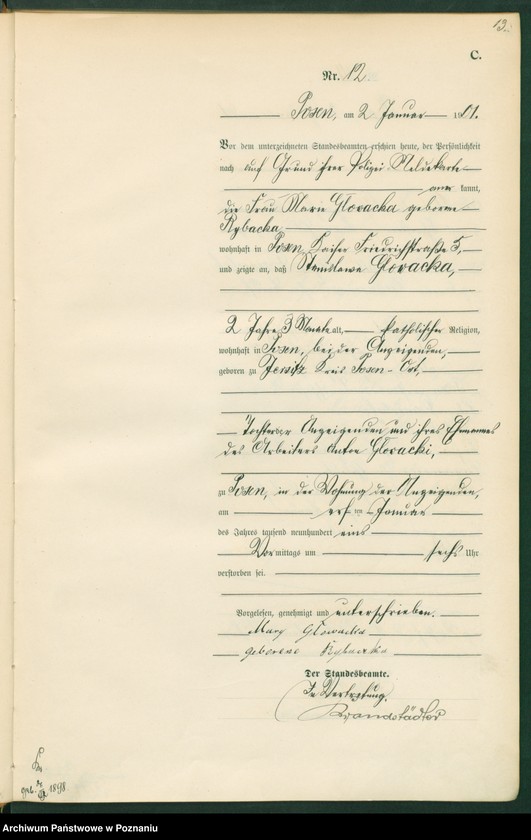 13.
C.
Nr. 12
Posen, am 2 Januar 1901.
Vor dem unterzeichneten Standesbeamten erschien heute, der Persönlichkeit
nach auf Grund ihrer Polizei Meldekarte
anerkannt,
die Frau Marie Głowacka geborene
Rybacka
wohnhaft in Posen, Kaiser Friedrichstraße 5,
und zeigte an, daß Stanislawa Głowacka,
2 Jahre 3 Monate alt, katholischer Religion,
wohnhaft in Posen, bei der Anzeigenden,
geboren zu Jersitz Kreis Posen-Ost,
Tochter der Anzeigenden und ihres Ehemannes
des Arbeiters Anton Głowacki,
zu Posen, in der Wohnung der Anzeigenden,
am ersten Januar
des Jahres tausend neunhundert eins
Vormittags um sechs Uhr
verstorben sei.
Vorgelesen, genehmigt und unterschrieben.
Mary Głowacka
geborene Rybacka
Der Standesbeamte.
In Vertretung.
Brandstädter
geb. 1898
Archiwum Państwowe w Poznaniu